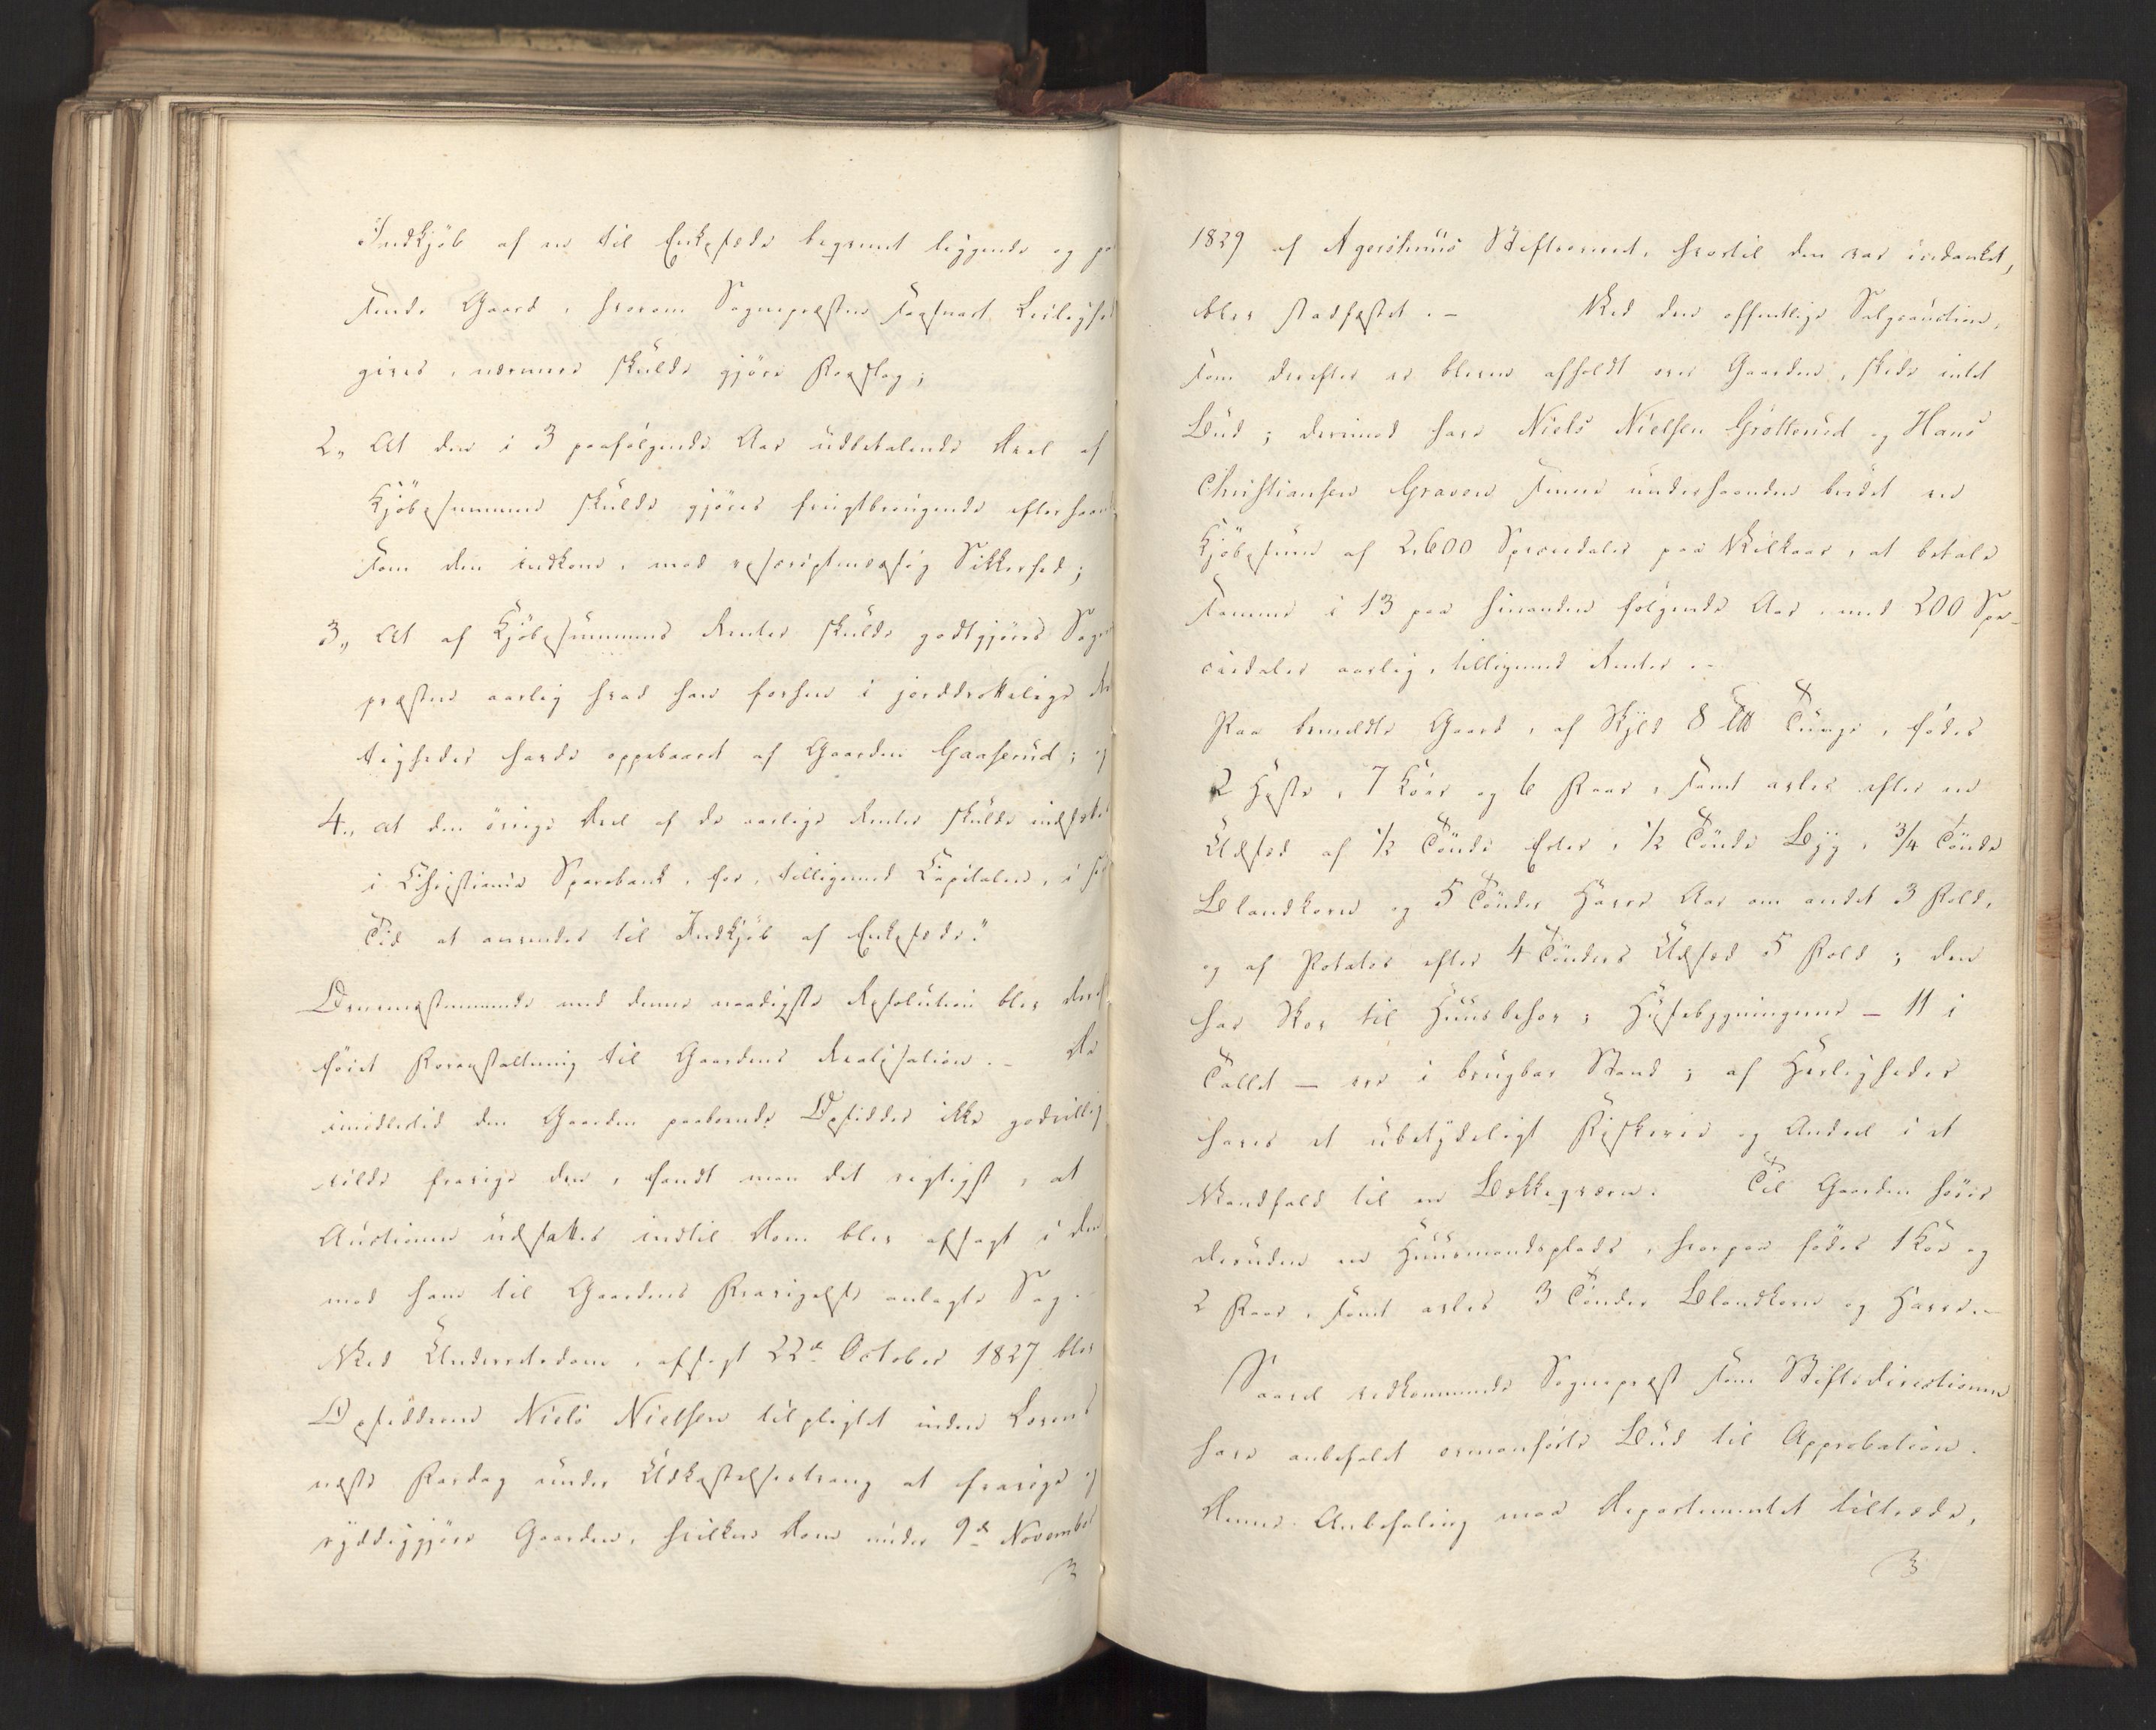 Indkjøb af en til Enkesæde beqvemt liggende og pas
sende Gaard, hvorom Sognepræsten saasnart Leilighed
gives, nærmere skulde gjøre Forslag;
2, At den i 3 paafølgende Aar udbetalende Deel af
Kjøbesummen skulde gjøres frugtbringende efterhaanden
som den indkom, mod rescriptmæssig Sikkerhed;
3, At af Kjøbesummens Renter skulde godtgjøres Sogne
præsten aarlig hvad han forhen i jorddrottelige Ret
tigheder havde oppebaaret af Gaarden Gaaserud; og
4, at den øvrige Deel af de aarlige Renter skulde indsættes
i Christiania Sparebank, for, tilligemed Capitalen, i sin
Tid at anvendes til Indkjøb af Enkesæde."
Overensstemmende med denne naadigste Resolution blev derefter
føiet Foranstaltning til Gaardens Realisation. – Da
imidlertid den Gaarden paaboende Opsidder ikke godvillig
vilde fravige den, fandt man det rigtigst, at
Auctionen udsattes indtil Dom blev afsagt i den
mod ham til Gaardens Fravigelse anlagte Sag. –
Ved Underretsdom, afsagt 22de October 1827 blev
Opsidderen Niels Nielsen tilpligtet inden Lovens
næste Fardag under Udkastelsestvang at fravige og
ryddiggjøre Gaarden, hvilken Dom under 9de November
1829 af Agershuus Stiftsoverret, hvortil den var indanket,
blev stadfæstet. – Ved den offentlige Salgsauction,
som derefter er bleven afholdt over Gaarden, skede intet
Bud; derimod have Niels Nielsen Grøtterud og Hans
Christiansen Graven siden underhaanden budet en
Kjøbesum af 2,600 Speciedaler paa Vilkaar, at betale
samme i 13 paa hinanden følgende Aar med 200 Spe-
ciedaler aarlig, tilligemed Renter. –
Paa bemeldte Gaard, af Skyld 8 lb Tunge, fødes
2 Heste, 7 Køer og 6 Faar, samt avles efter en
Udsæd af 1/2 Tønde Erter, 1/2 Tønde Byg, 3/4 Tønde
Blandkorn og 5 Tønder Havre Aar om andet 3 Fold,
og af Potatos efter 4 Tønders Udsæd 5 Fold; den
har Skov til Huusbehov; Husebygningerne – 11 i
Tallet – ere i brugbar Stand; af Herligheder
haves et ubetydeligt Fiskerie og Andeel i et
Vandfald til en Bækkeqværn. Til Gaarden hører
desuden en Huusmandsplads, hvorpaa fødes 1 Koe og
2 Faar, samt avles 3 Tønder Blandkorn og Havre. –
Saavel vedkommende Sognepræst som Stiftsdirectionen
have anbefalet ovenanførte Bud til Approbation.
Denne Anbefaling maa Departementet tiltræde,